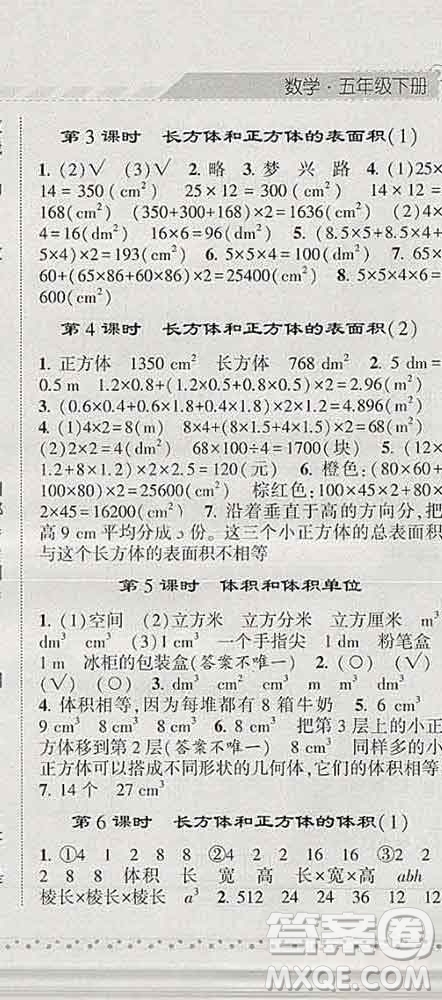 数学·五年级下册
第3课时 长方体和正方体的表面积(1)
1. (2)√ (3)√ 2. 略 3. 梦 兴 路 4. (1)25×
14=350(cm²) 25×12=300(cm²) 14×12=
168(cm²) (350+300+168)×2=1636(cm²) (2)4×
4=16(dm²) 16×6=96(dm²) 5. (8.5×5+8.5×4+
5×4)×2=193(cm²) 6. 5×5×4=100(dm²) 7. 65×
60+(65×86+60×86)×2=25400(cm²) 8. 5×5×4×6=
600(cm²)
第4课时 长方体和正方体的表面积(2)
1. 正方体 1350 cm² 长方体 768 dm² 2. 5 dm=
0.5 m 1.2×0.8+(1.2×0.5+0.8×0.5)×2=2.96(m²)
3. (0.6×0.4+0.6×1.8+0.4×1.8)×2×2=4.896(m²)
4. (1)4×2=8(m) 8×4+(8×1.5+4×1.5)×2=68(m²)
(2)2×2=4(dm²) 68×100÷4=1700(块) 5. (12×
1.2+8×1.2)×2×5×½=120(元) 6. 橙色:(80×60+
100×40)×2+80×100=25600(cm²) 棕红色:100×45×2+80×
2×45=16200(cm²) 7. 沿着垂直于高的方向分,把
高9 cm平均分成3份。这三个小正方体的总表面积
与这个长方体的表面积不相等
第5课时 体积和体积单位
1. (1)空间 (2)立方米 立方分米 立方厘米 m³
dm³ cm³ (3)1 cm³ 一个手指尖 1 dm 粉笔盒
1 m 冰柜的包装盒(答案不唯一) 2. (○) (√)
(√) (○) 3. cm³ dm³ cm³ m m³ dm³
4. 体积相等,因为每堆都有8箱牛奶 5. 6 cm³
9 cm³ 8 cm³ 6. 8 cm³ 把第3层上的小正
方体移到第2层(答案不唯一) 8 cm³ 同样多的小
正方体可以搭成不同形状的几何体,它们的体积相等
7. 14个 27 cm³
第6课时 长方体和正方体的体积(1)
1. ①4 1 2 8 8 ②4 2 2 16 16 ③2 2
2 8 8 体积 长 宽 高 长×宽×高 abh
棱长×棱长×棱长 a³ 2. 512 24 24 36
答案圈
MXQE.COM